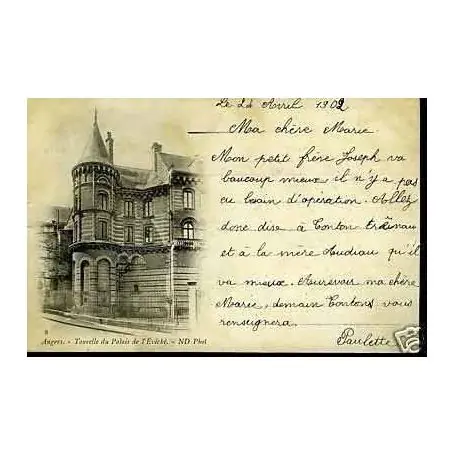 Le 24 Avril 1902
Ma chère Marie.
Mon petit frère Joseph va
baucoup mieux il n'y a pas
eu besoin d'opération. Allez
donc dire à Tonton
et à la mère Audiau qu'il
va mieux. Aurevoir ma chère
Marie, demain Tontons vous
renseignera.
Paulette
8
Angers. - Tourelle du Palais de l'Évêché. - ND Phot